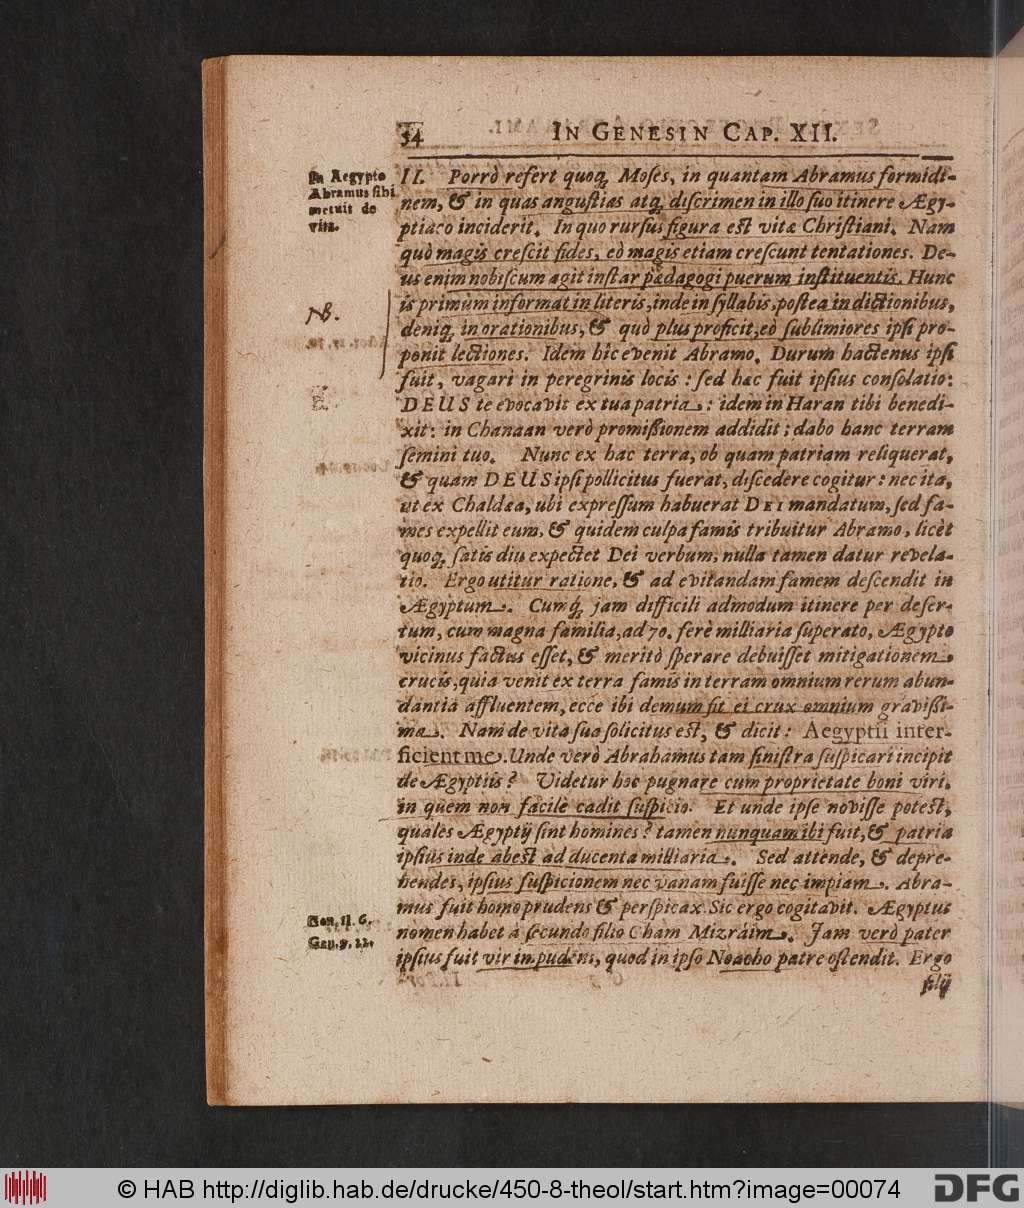 54 IN GENESIN CAP. XII.
In Aegypto
Abramus sibi
metuit de
vita.
II. Porrò refert quoq; Moses, in quantam Abramus formidi-
nem, & in quas angustias atq; discrimen in illo suo itinere Ægy-
ptiaco inciderit. In quo rursus figura est vitæ Christiani. Nam
quò magis crescit fides, eò magis etiam crescunt tentationes. De-
us enim nobiscum agit instar pædagogi puerum instituentis. Hunc
is primùm informat in literis, inde in syllabis, postea in dictionibus,
NB.
deniq; in orationibus, & quò plus proficit, eò sublimiores ipsi pro-
ponit lectiones. Idem hîc evenit Abramo. Durum hactenus ipsi
fuit, vagari in peregrinis locis: sed hæc fuit ipsius consolatio:
DEUS te evocavit ex tua patria: idem in Haran tibi benedi-
xit: in Chanaan verò promißionem addidit; dabo hanc terram
semini tuo. Nunc ex hac terra, ob quam patriam reliquerat,
& quam DEUS ipsi pollicitus fuerat, discedere cogitur: nec ita,
ut ex Chaldæa, ubi expressum habuerat DEI mandatum, sed fa-
mes expellit eum, & quidem culpa famis tribuitur Abramo, licèt
quoq; satis diu expectet Dei verbum, nulla tamen datur revela-
tio. Ergo utitur ratione, & ad evitandam famem descendit in
Ægyptum. Cumq; jam difficili admodum itinere per deser-
tum, cum magna familia, ad 70. ferè milliaria superato, Ægypto
vicinus factus esset, & meritò sperare debuisset mitigationem
crucis, quia venit ex terra famis in terram omnium rerum abun-
dantiâ affluentem, ecce ibi demum fit ei crux omnium gravißi-
ma. Nam de vita sua solicitus est, & dicit: Aegyptii inter-
ficient me. Unde verò Abrahamus tam sinistra suspicari incipit
de Ægyptiis? Videtur hoc pugnare cum proprietate boni viri,
in quem non facilè cadit suspicio. Et unde ipse novisse potest,
quales Ægyptij sint homines? tamen nunquam ibi fuit, & patria
ipsius inde abest ad ducenta milliaria. Sed attende, & depre-
hendes, ipsius suspicionem nec vanam fuisse nec impiam. Abra-
mus fuit homo prudens & perspicax. Sic ergo cogitavit. Ægyptus
Gen. 11. 6.
nomen habet à secundo filio Cham Mizraim. Jam verò pater
Gen. 9. 22.
ipsius fuit vir impudens, quod in ipso Noacho patre ostendit. Ergo
filij
© HAB http://diglib.hab.de/drucke/450-8-theol/start.htm?image=00074
DFG